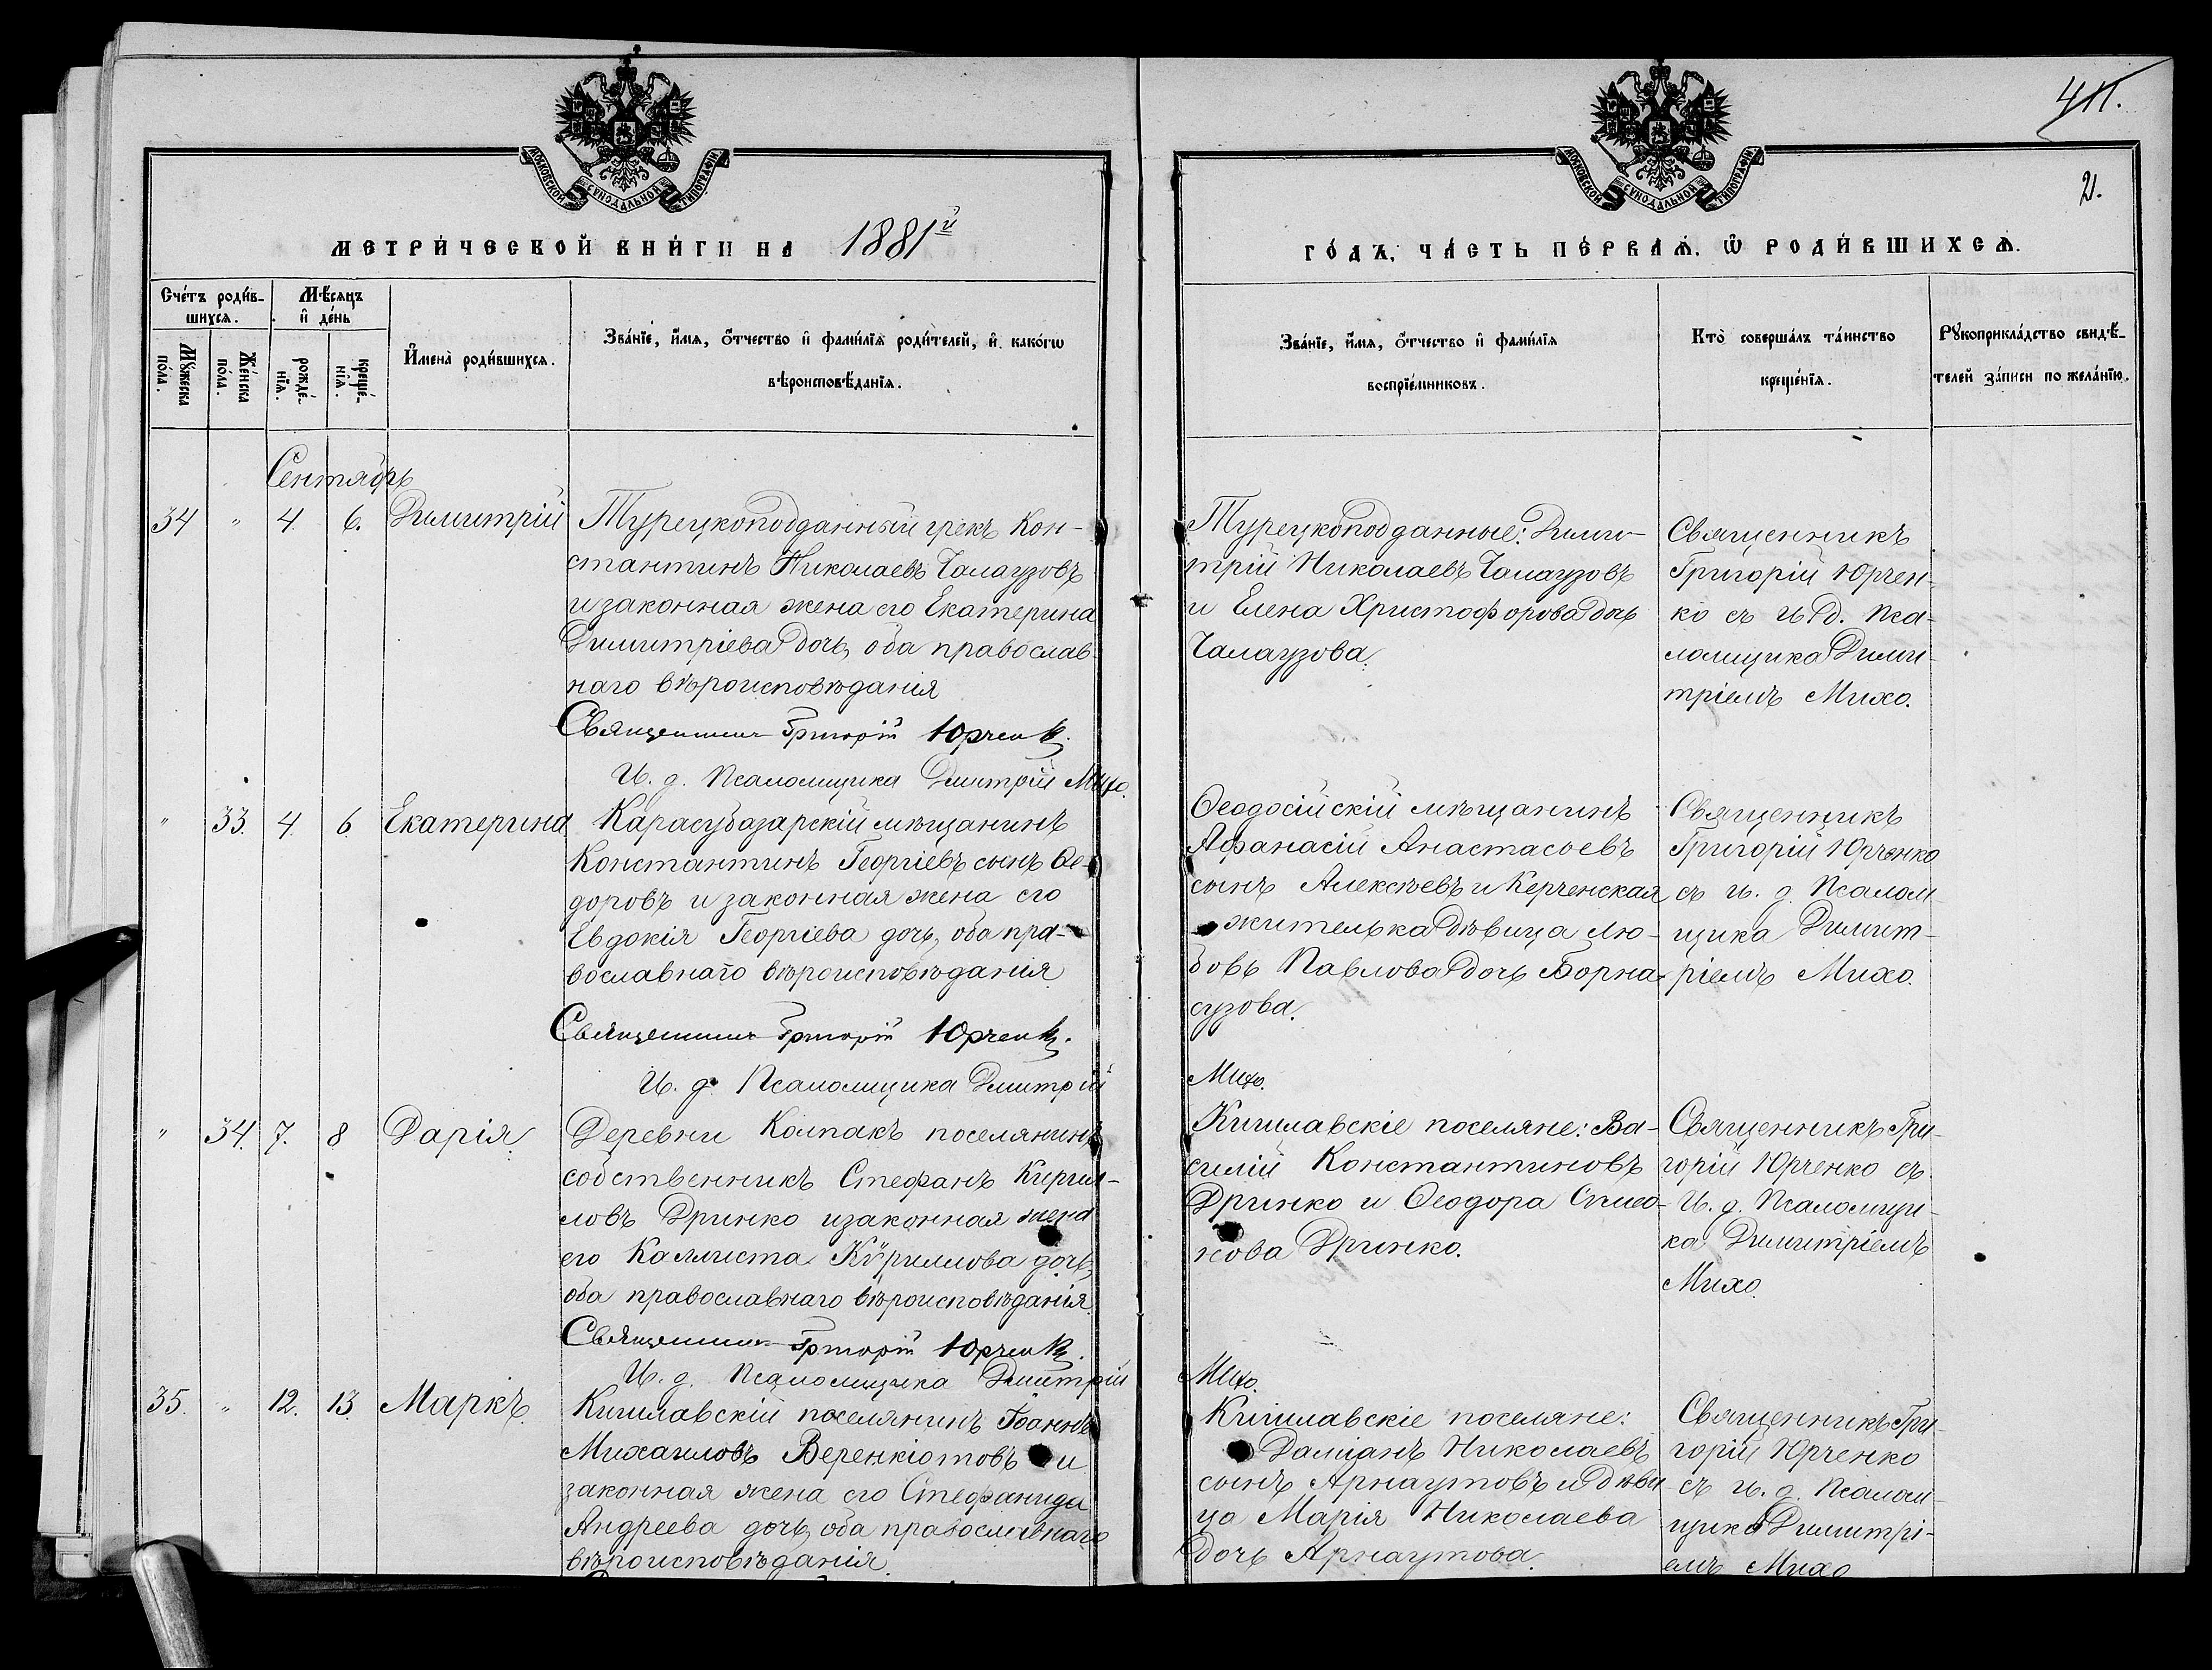 411.
2.
МОСКОВСКОЙ СѴНОДАЛЬНОЙ ТИПОГРАФІИ
МОСКОВСКОЙ СѴНОДАЛЬНОЙ ТИПОГРАФІИ
МЕТРИ́ЧЕСКОЙ КНИ́ГИ НА 1881й
ГО́ДЪ, ЧА́СТЬ ПЕ́РВАѦ, Ѿ РОДИ́ВШИХСѦ.
Сче́тъ роди́в-
шихсѧ.
Мѣ́сѧцъ
и҆ де́нь
Мꙋ́жеска
по́ла.
Же́нска
по́ла.
рожде́-
нїѧ.
креще́-
нїѧ.
И҆мена̀ роди́вшихсѧ.
Зва́нїе, и҆́мѧ, ѻ҆́тчество и҆ фами́лїѧ роди́телей, и҆ како́гѡ
вѣроисповѣ́данїѧ.
Зва́нїе, и҆́мѧ, ѻ҆́тчество и҆ фами́лїѧ
воспрїе́мниковъ.
Кто̀ соверша́лъ та́инство
креще́нїѧ.
Рꙋкоприкла́дство свидѣ́-
телей за́писи по жела́нїю.
Сентябрь
34 " 4 6. Димитрій
Турецкоподданный грекъ Кон-
стантинъ Николаевъ Чалаузовъ
и законная жена его Екатерина
Димитріева дочь, оба православ-
наго вѣроисповѣданія
Священникъ Григорій Юрченко.
И. д. Псаломщика Дмитрій Михо.
Турецкоподданные: Дими-
трій Николаевъ Чалаузовъ
и Елена Христофорова дочь
Чалаузова.
Священникъ
Григорій Юрчен-
ко съ и. д. Пса-
ломщика Дими-
тріемъ Михо.
" 33. 4. 6 Екатерина
Карасубазарскій мѣщанинъ
Константинъ Георгіевъ сынъ Ѳе-
доровъ и законная жена его
Евдокія Георгіева дочь, оба пра-
вославнаго вѣроисповѣданія
Священникъ Григорій Юрченко.
И. д. Псаломщика Дмитрій
Ѳеодосійскій мѣщанинъ
Афанасій Анастасьевъ
сынъ Алексѣевъ и Керченская
жителька дѣвица Лю-
бовь Павлова дочь Борна-
сузова.
Михо.
Священникъ
Григорій Юрченко
съ и. д. Псалом-
щика Димит-
ріемъ Михо.
" 34. 7. 8 Дарія
Деревни Колпакъ поселянинъ
собственникъ Стефанъ Кирил-
ловъ Дринко и законная жена
его Каллиста Кѵриллова дочь,
оба православнаго вѣроисповѣданія.
Священникъ Григорій Юрченко.
И. д. Псаломщика Дмитрій
Кишлавскіе поселяне: Ва-
силій Константиновъ
Дринко и Ѳеодора Симо-
нова Дринко.
Михо.
Священникъ Гри-
горій Юрченко съ
И. д. Псаломщи-
ка Димитріемъ
Михо.
35. " 12. 13. Маркъ.
Кишлавскій поселянинъ Іоаннъ
Михаиловъ Веренкіотовъ и
законная жена его Стефанида
Андреева дочь, оба православнаго
вѣроисповѣданія.
Кишлавскіе поселяне:
Даміанъ Николаевъ
сынъ Арнаутовъ и дѣви-
ца Марія Николаева
дочь Арнаутова.
Священникъ Гри-
горій Юрченко
съ и. д. Псалом-
щика Димитрі-
емъ Михо